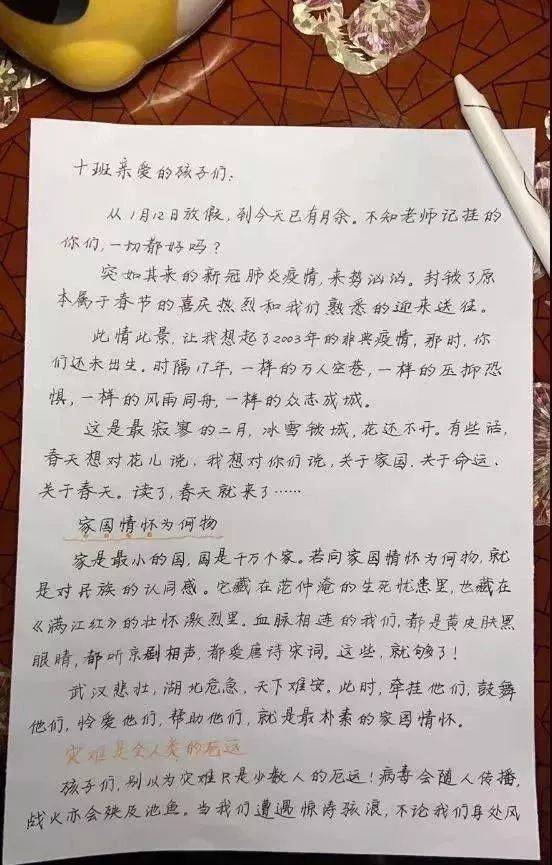 十班亲爱的孩子们:
从1月12日放假,到今天已有月余。不知老师记挂的
你们,一切都好吗?
突如其来的新冠肺炎疫情,来势汹汹。封锁了原
本属于春节的喜庆热烈和我们熟悉的迎来送往。
此情此景,让我想起了2003年的非典疫情,那时,你
们还未出生。时隔17年,一样的万人空巷,一样的压抑恐
惧,一样的风雨同舟,一样的众志成城。
这是最寂寥的二月,冰雪锁城,花还不开。有些话,
春天想对花儿说,我想对你们说,关于家国、关于命运、
关于春天。读了,春天就来了……
家国情怀为何物
家是最小的国,国是千万个家。若问家国情怀为何物,就
是对民族的认同感。它藏在范仲淹的生死忧患里,也藏在
《满江红》的壮怀激烈里。血脉相连的我们,都是黄皮肤黑
眼睛,都听京剧相声,都爱唐诗宋词。这些,就够了!
武汉悲壮,湖北危急,天下难安。此时,牵挂他们,鼓舞
他们,怜爱他们,帮助他们,就是最朴素的家国情怀。
灾难是全人类的厄运
孩子们,别以为灾难只是少数人的厄运!病毒会随人传播,
战火亦会殃及池鱼。当我们遭遇惊涛骇浪,不论我们身处风